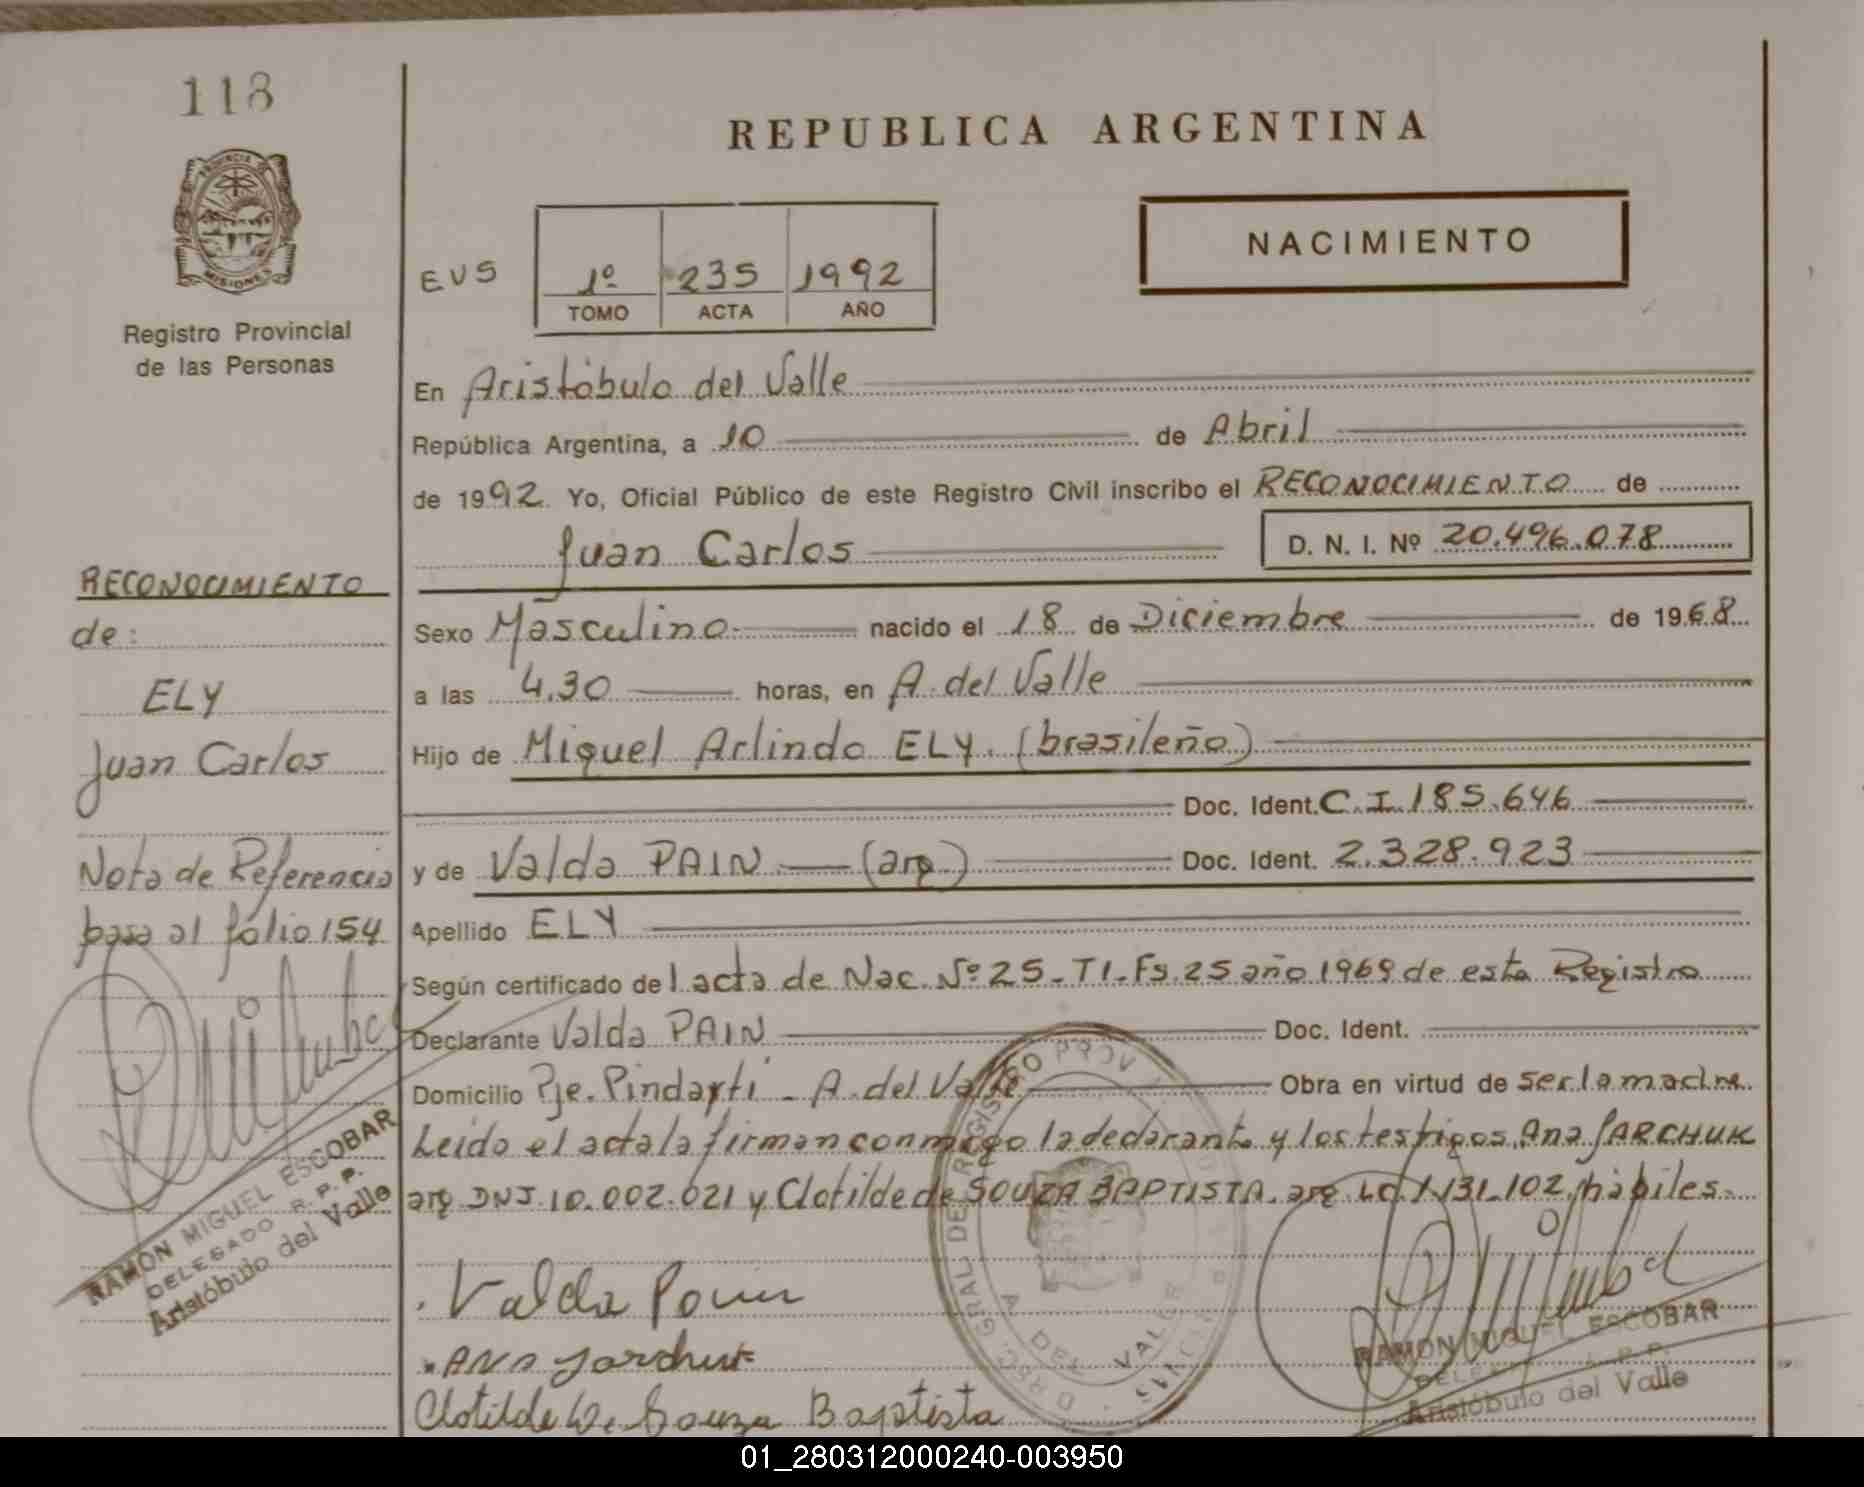 118
REPUBLICA ARGENTINA
PROVINCIA DE
MISIONES
Registro Provincial
de las Personas
NACIMIENTO
EVS
1º 235 1992
TOMO ACTA AÑO
En Aristóbulo del Valle
República Argentina, a 10 de Abril
de 1992. Yo, Oficial Público de este Registro Civil inscribo el RECONOCIMIENTO de
Juan Carlos D. N. I. Nº 20.496.078
Sexo Masculino nacido el 18 de Diciembre de 1968
a las 4.30 horas, en A. del Valle
Hijo de Miguel Arlindo ELY. (brasileño)
Doc. Ident. C.I. 185.646
y de Valda PAIN (arg.) Doc. Ident. 2.328.923
Apellido ELY
Según certificado del acta de Nac. Nº 25 - T1 - Fs. 25 año 1969 de este Registro
Declarante Valda PAIN Doc. Ident.
Domicilio Pje. Pindayti - A. del Valle Obra en virtud de ser la madre.
Leída el acta la firman conmigo la declarante y los testigos, Ana JARCHUK
arg DNI. 10.002.021 y Clotilde de SOUZA BAPTISTA. arg LC. 1.131.102, hábiles.
RECONOCIMIENTO
de:
ELY
Juan Carlos
Nota de Referencia
pasa al folio 154
RAMON MIGUEL ESCOBAR
DELEGADO R. P. P.
Aristóbulo del Valle
Valda Pain
Ana Jarchuk
Clotilde de Souza Baptista
REGISTRO PROV
VALLE
RAMON MIGUEL ESCOBAR
Aristóbulo del Valle
01_280312000240-003950